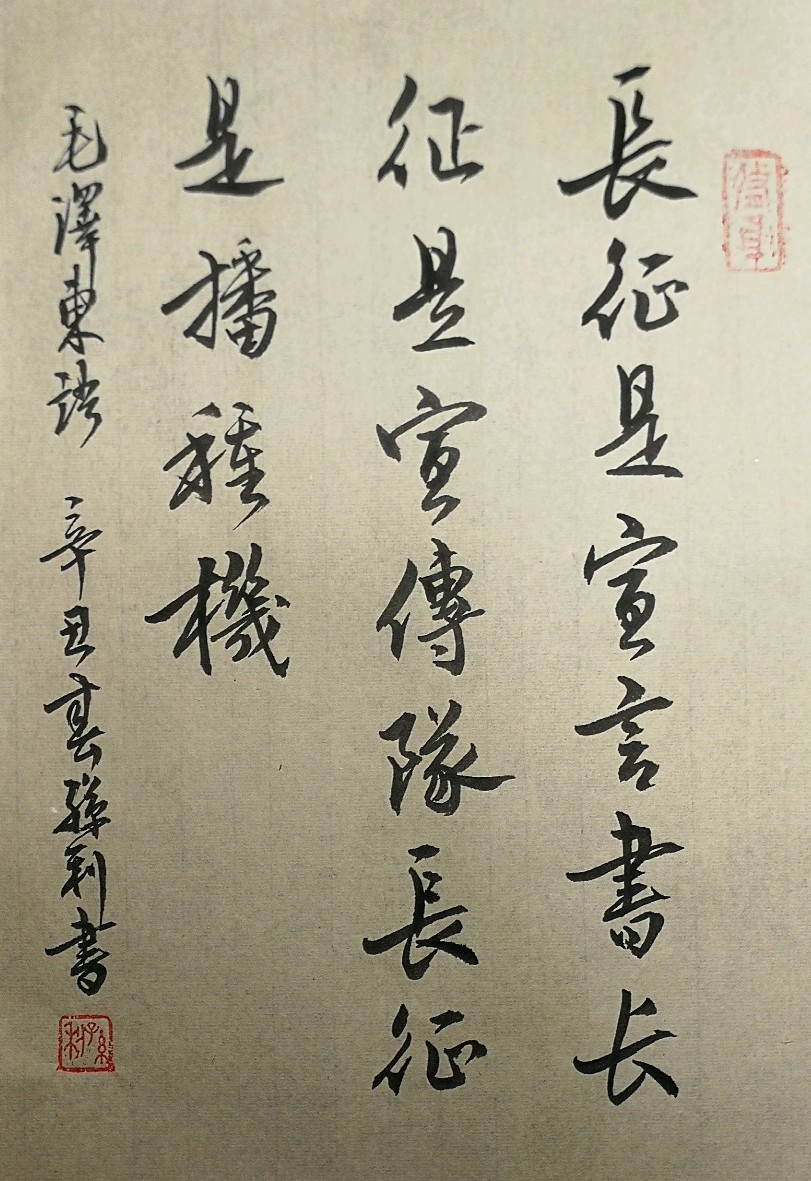 長征是宣言書长
征是宣傳隊長征
是播種機
毛澤東語 辛丑春孫利書
孫利